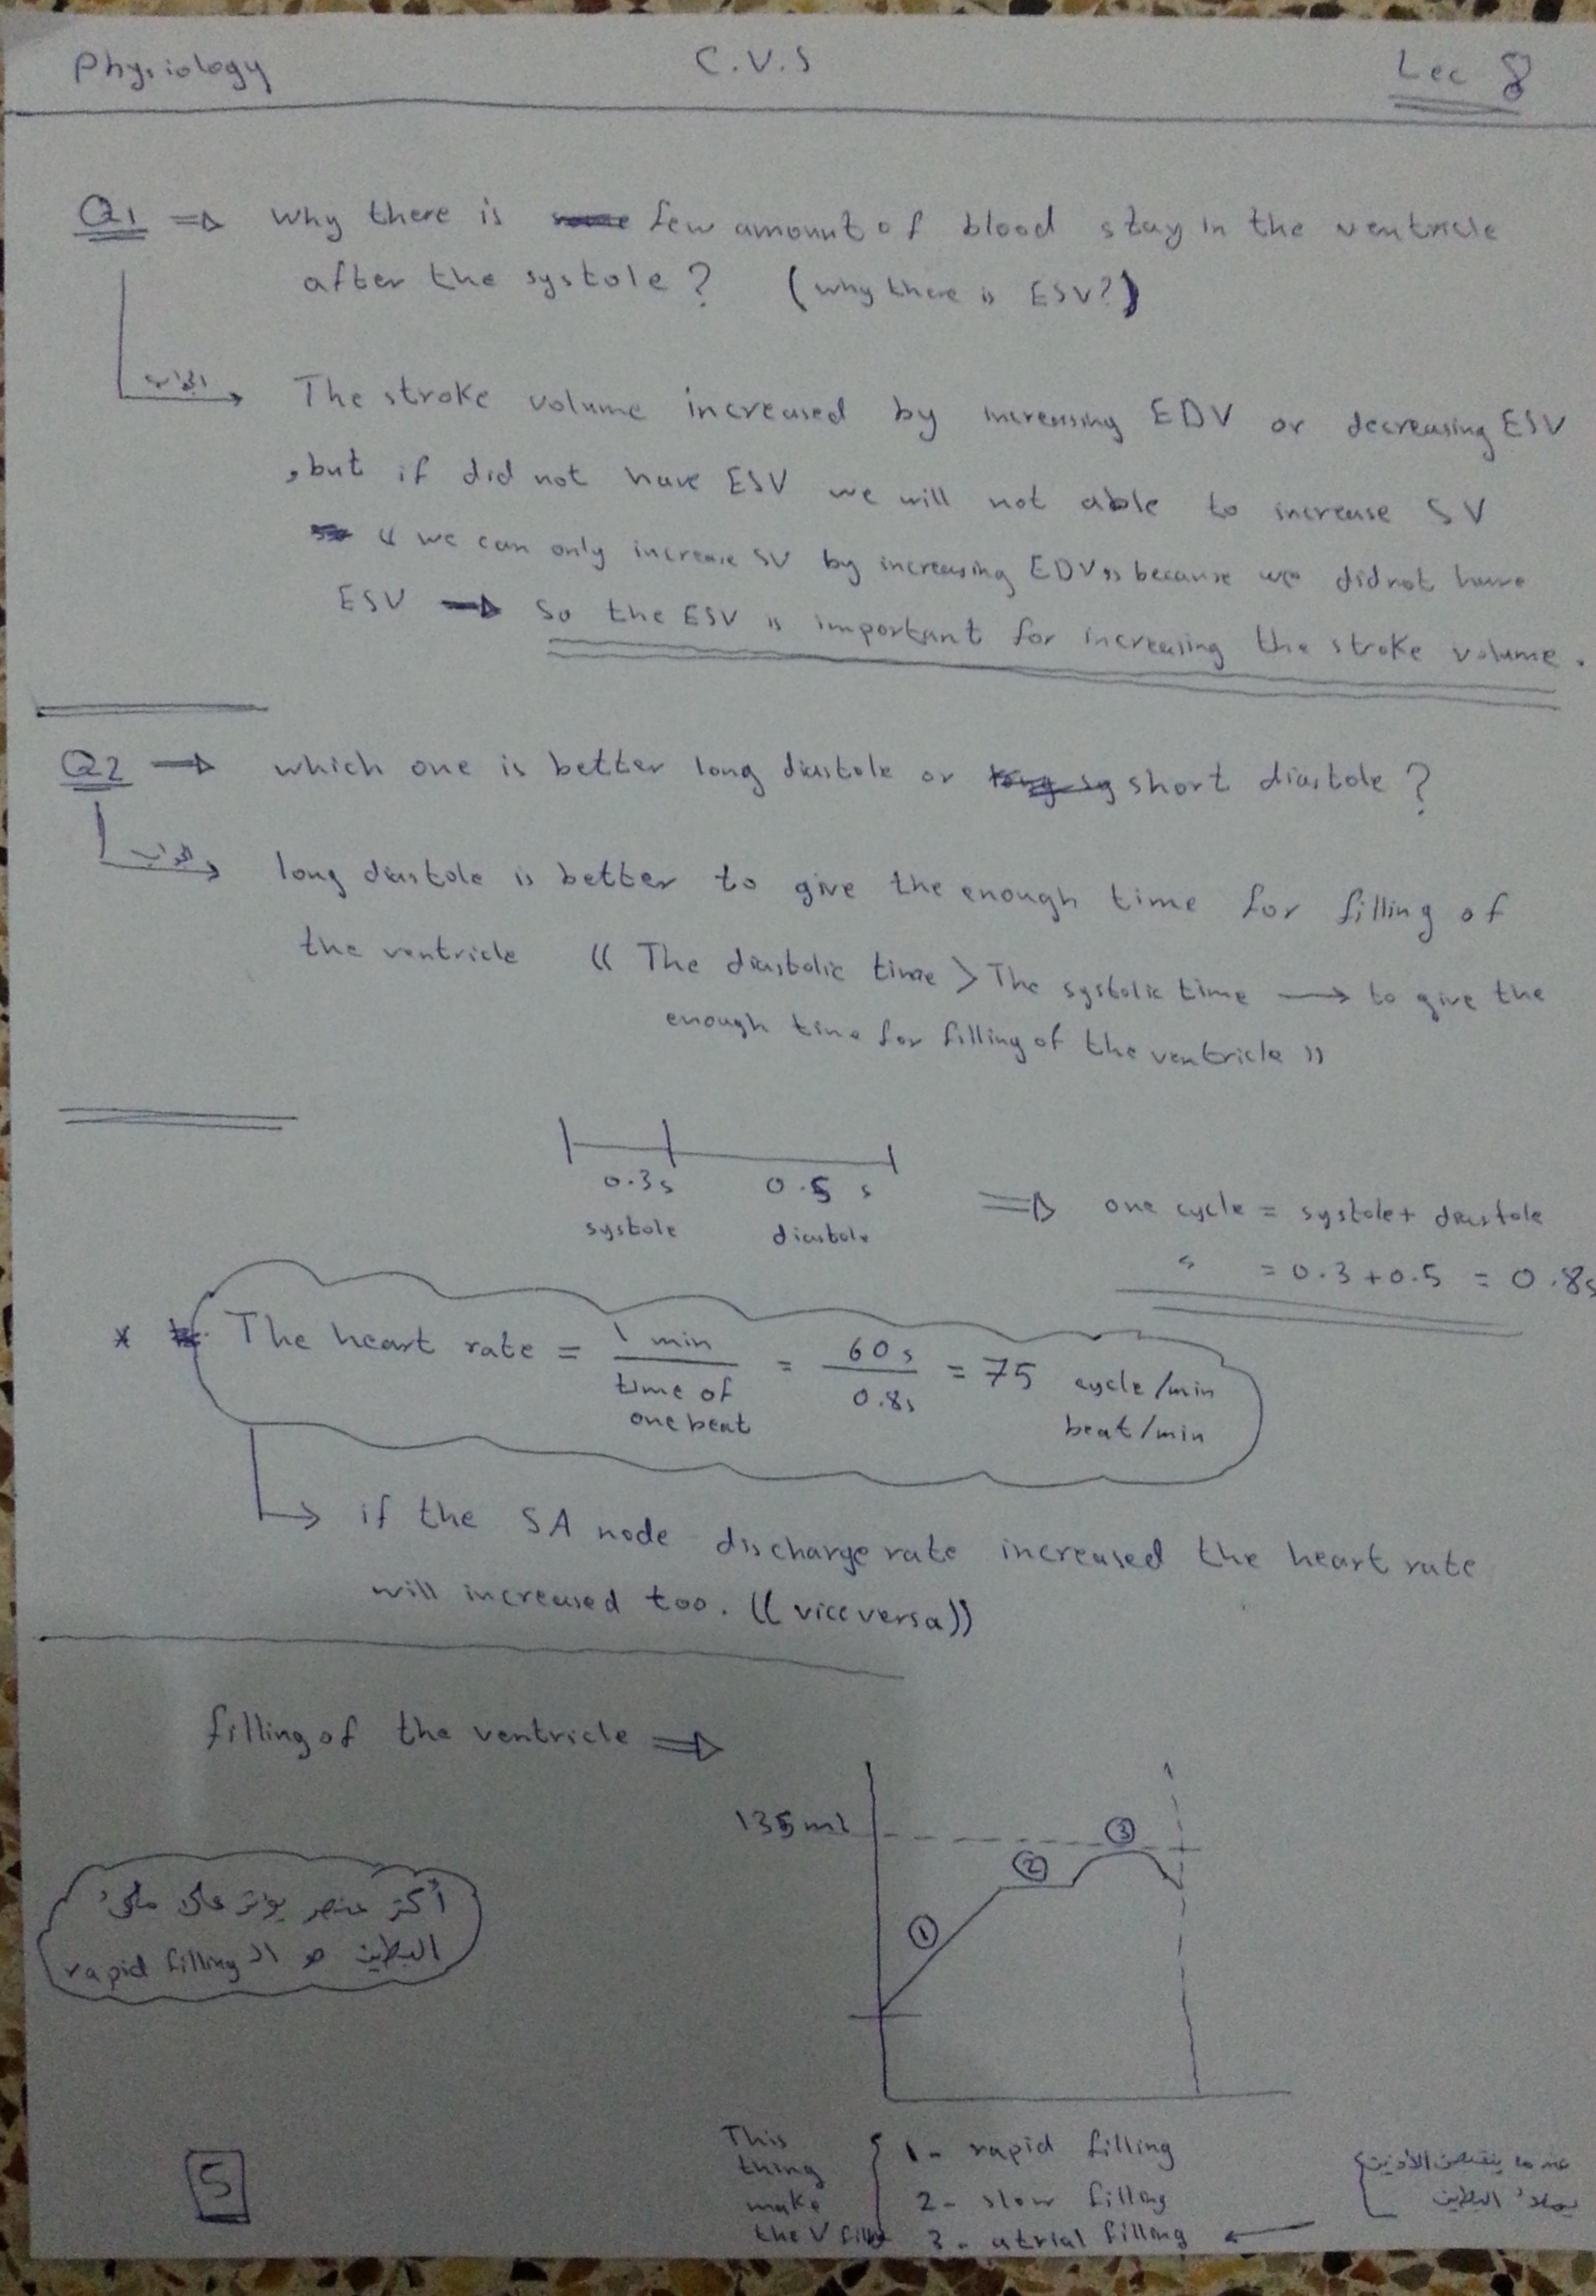 Physiology
C.V.S
Lec 8
Q1 ⇒ why there is few amount of blood stay in the ventricle
after the systole? (why there is ESV?)
الجواب
The stroke volume increased by increasing EDV or decreasing ESV
, but if did not have ESV we will not able to increase SV
(( we can only increase SV by increasing EDV )) because we didnot have
ESV → So the ESV is important for increasing the stroke volume.
Q2 ⇒ which one is better long diastole or short diastole?
الجواب
long diastole is better to give the enough time for filling of
the ventricle (( The diastolic time > The systolic time → to give the
enough time for filling of the ventricle ))
0.3s 0.5 s
systole diastole
⇒ one cycle = systole + diastole
" = 0.3 + 0.5 = 0.8s
* The heart rate = 1 min / time of one beat = 60 s / 0.8s = 75 cycle/min
beat/min
if the SA node discharge rate increased the heart rate
will increased too. ((viceversa))
filling of the ventricle ⇒
135 ml
1
2
3
أكثر عنصر يؤثر على ملئ
البطين هو الـ rapid filling
This
thing
make
the V fill
1- rapid filling
2- slow filling
3- atrial filling ←
عندما ينقبض الأذين
يملأ البطين
5